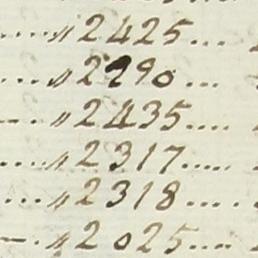 ....〃2425...
....〃2290...
-..〃2435....
....〃2317.....
....〃2318.....
-..〃2025....